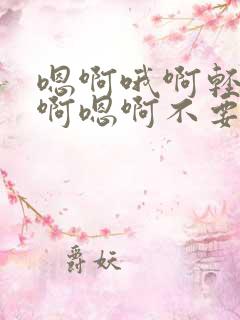 嗯啊哦啊轻
啊嗯啊不要
爵妖